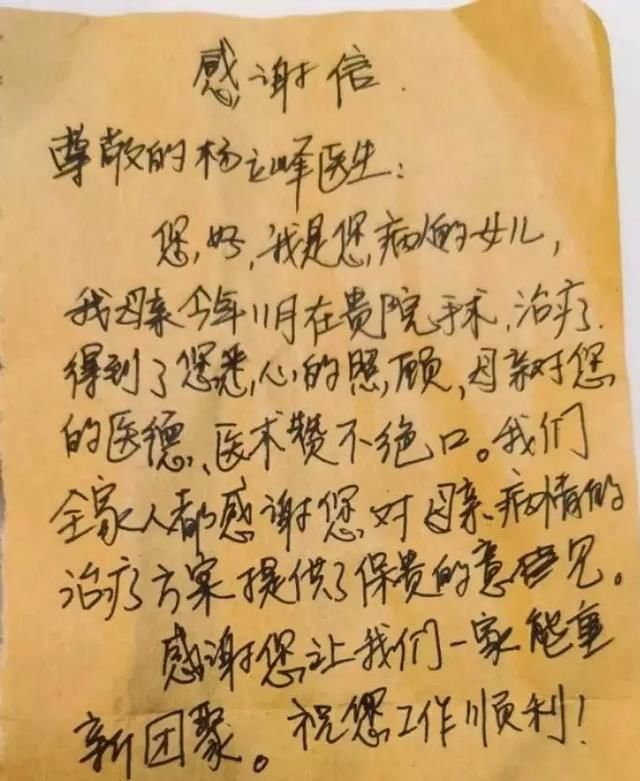 感谢信.
尊敬的杨立峰医生:
您,好,我是您,病人的女儿,
我母亲今年11月在贵院手术,治疗.
得到了您悉,心的照,顾,母亲对您
的医德、医术赞不绝口。我们
全家人都感谢您,对母亲、病情的
治疗方案提供了保贵的意见。
感谢您,让我们一家能重
新团聚。祝您工作顺利!